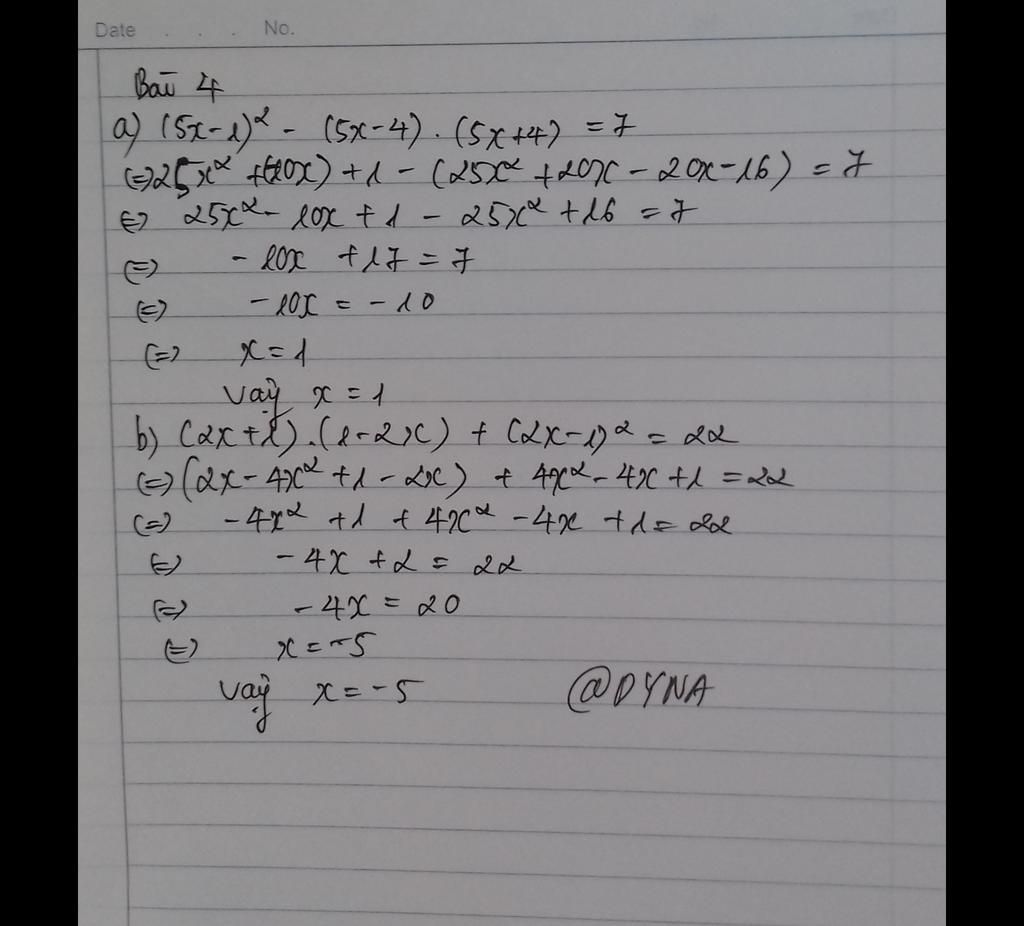 Date . . . No.
Bài 4
a) (5x-1)² - (5x-4).(5x+4) = 7
(=) 25x² +(-10x) + 1 - (25x² + 20x - 20x - 16) = 7
(=) 25x² - 10x + 1 - 25x² + 16 = 7
(=) - 10x + 17 = 7
(=) - 10x = - 10
(=) x = 1
Vậy x = 1
b) (2x+1).(1-2x) + (2x-1)² = 22
(=) (2x - 4x² + 1 - 2x) + 4x² - 4x + 1 = 22
(=) - 4x² + 1 + 4x² - 4x + 1 = 22
(=) - 4x + 2 = 22
(=) - 4x = 20
(=) x = -5
Vậy x = -5 @DYNA